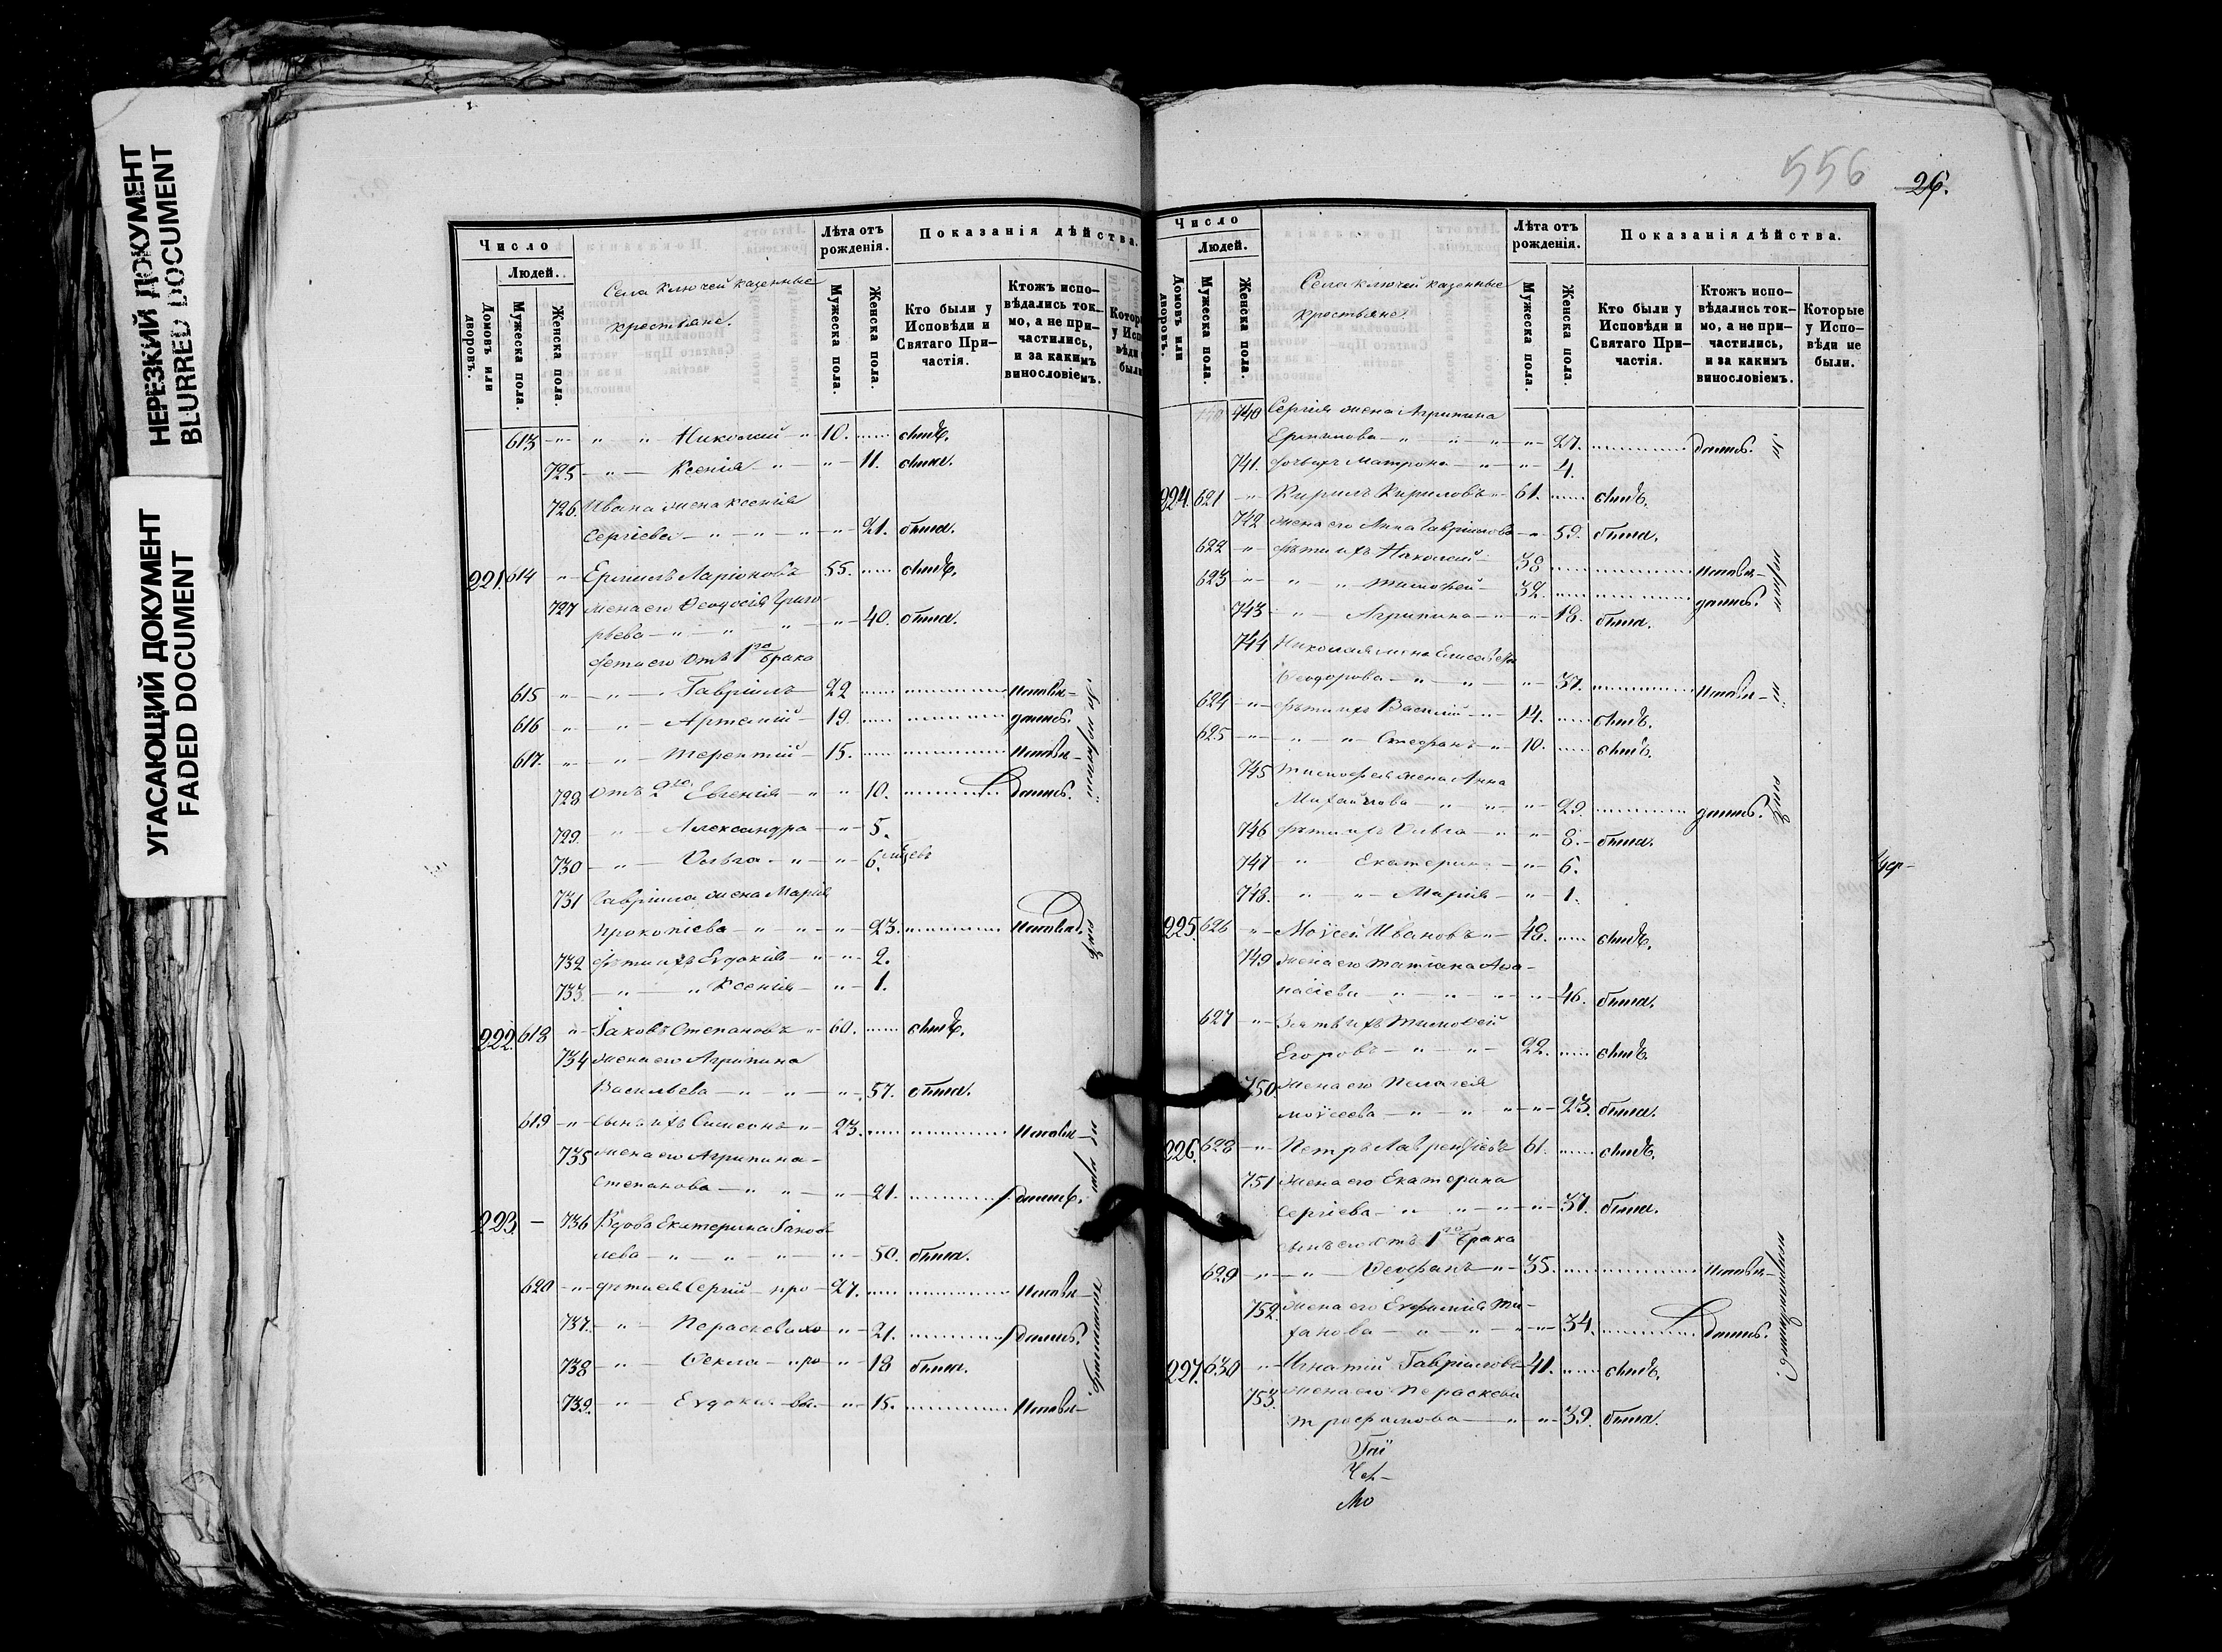 НЕРЕЗКИЙ ДОКУМЕНТ
BLURRED DOCUMENT
УГАСАЮЩИЙ ДОКУМЕНТ
FADED DOCUMENT
Число
Людей.
Домовъ или дворовъ.
Мужеска пола.
Женска пола.
Села Ключей казенные
крестьяне.
Лѣта отъ рожденія.
Мужеска пола.
Женска пола.
Показанія дѣйства.
Кто были у Исповѣди и Святаго Причастія.
Ктожъ исповѣдались токмо, а не причастились, и за какимъ винословіемъ.
613 " " Николай 10. былъ.
725 " Ксенія " 11. была.
726. Ивана жена Ксенія
Сергіева " " " 21. была.
221. 614 " Ермилъ Ларіоновъ 55. былъ.
727 жена его Ѳеодосія Григо-
рьева " " " 40. была.
Дети его отъ 1го брака
615 " " Гавріилъ 22 исповѣ-
616 " " Артемій 19. дались.
617. " " Терентій 15. исповѣ-
728 отъ 2го Евгенія " " 10. дались.
729. " Александра " 5.
730 " Ольга " " 6. мѣсяцевъ
731 Гавріила жена Марія
Прокопіева " " " 23. исповѣд.
732 Дѣти ихъ Евдокія " " 2.
733. " " Ксенія " 1.
222. 618 " Іаковъ Степановъ " 60. былъ.
734 жена его Агрипина
Васильева " " " 57. была.
619 " сынъ ихъ Симеонъ " 23. исповѣ-
735 жена его Агрипина
Степанова " " " 21. дались.
223. — 736 Вдова Екатерина Іаков-
лева " " " " 50. была.
620 " дѣти ея Сергій 27. исповѣ-
737. " Параскева " 21. дались.
738 " Ѳекла " 18 была.
739. " Евдокія " 15. исповѣ-
556
26.
Число
Людей.
Домовъ или дворовъ.
Мужеска пола.
Женска пола.
Села Ключей казенные
крестьяне.
Лѣта отъ рожденія.
Мужеска пола.
Женска пола.
Показанія дѣйства.
Кто были у Исповѣди и Святаго Причастія.
Ктожъ исповѣдались токмо, а не причастились, и за какимъ винословіемъ.
Которые у Исповѣди не были.
740 Сергія жена Агрипина
Ермилова " " " " 27. дались.
741. дочь ихъ Матрона " " 4.
224. 621 " Кирилъ Кириловъ " 61. былъ.
742 жена его Анна Гавріилова " 59. была.
622 " Дѣти ихъ Николай 38 исповѣ-
623 " " " Тимоѳей 32. дались.
743 " Агрипина " " 18. была.
744 Николая жена Елисавета
Ѳеодорова " " " 37. исповѣ-
624 " Дѣти ихъ Василій " 14. былъ.
625 " " " Стефанъ " 10. былъ.
745 Тимоѳея жена Анна
Михайлова " " " 29. дались.
746 Дѣти ихъ Ольга " " 8. была.
747 " Екатерина " 6.
748. " " Марія " 1.
225. 626 " Моѵсей Ивановъ " 48. былъ.
749 жена его Татіана Аѳа-
насіева " " " " 46. была.
627 " Зять ихъ Тимоѳей
Егоровъ " " 22. былъ.
750. жена его Пелагея
Моѵсеева " " " " 23. была.
226. 628 " Петръ Лаврентіевъ 61. былъ.
751 жена его Екатерина
Сергіева " " " " 37. была.
сынъ его отъ 1го брака
629 " " Ѳеофанъ " 35. исповѣ-
752. жена его Евфимія Ти-
ханова " " " " 34. дались.
227. 630 " Игнатій Гавріиловъ 41. былъ.
753. жена его Параскева
Трофимова " " 39. была.